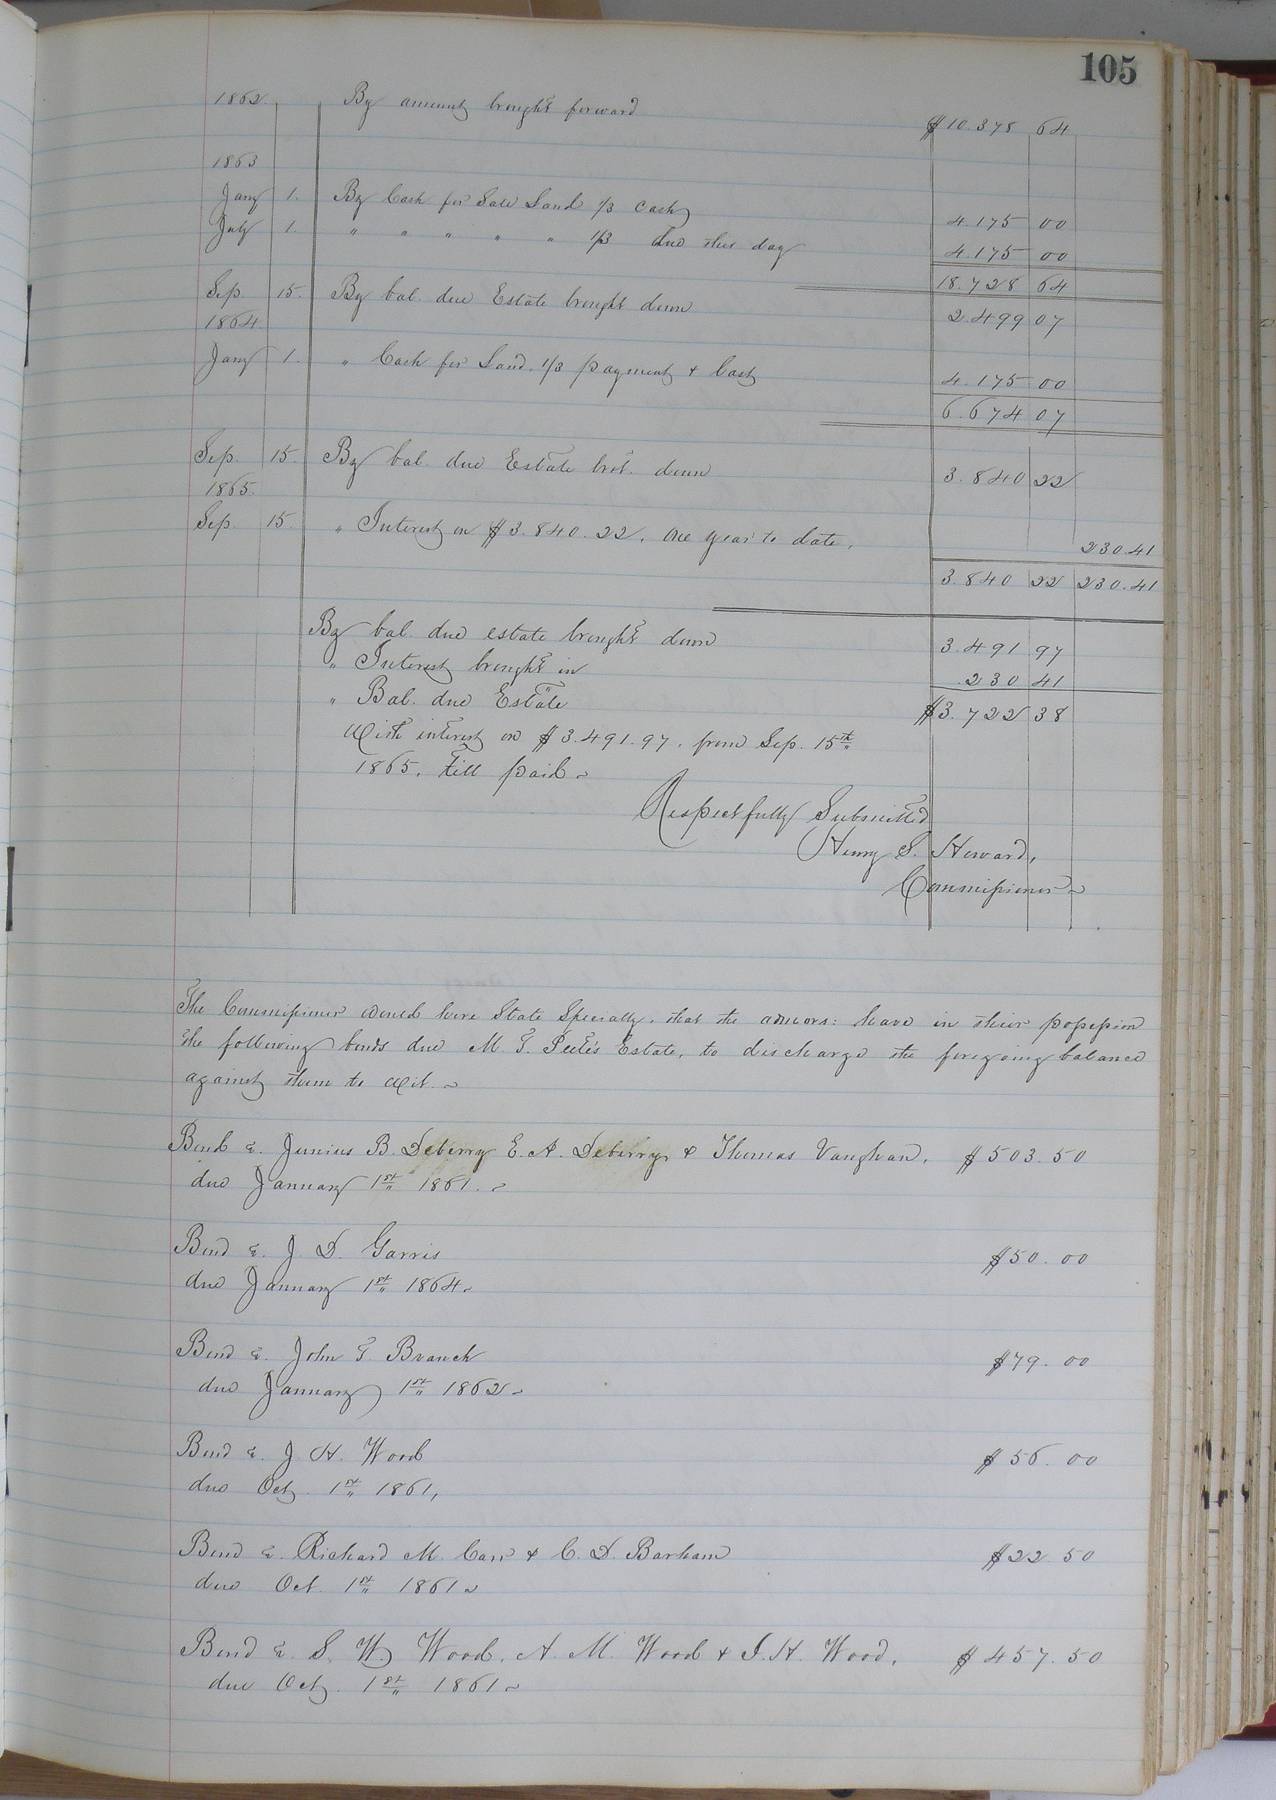 105
1862 By amount brought forward $10.378 64
1863
Jany 1. By Cash for Sale Land 1/3 cash 4.175 00
July 1. " " " " " 1/3 due this day 4.175 00
18.728 64
Sep 15. By bal. due Estate brought down 2.499 07
1864
Jany 1. " Cash for Land. 1/3 payment & last 4.175 00
6.674 07
Sep. 15 By bal. due Estate brot. down 3.840 22
1865.
Sep. 15 " Interest on $3.840.22. one year to date. 230.41
3.840 22 230.41
By bal. due estate brought down 3.491 97
" Interest brought in 230 41
" Bal. due Estate $3.722 38
With interest on $3.491.97. from Sep. 15th
1865. till paid
Respectfully Submitted
Henry S. Howard,
Commissioner
The Commissioner would here State Specially. that the admors: have in their possession
the following bonds due M. T. Peete's Estate, to discharge the foregoing balance
against them to wit
Bond &. Junius B. Deberry E. A. Deberry & Thomas Vaughan. $503.50
due January 1st 1861.
Bond &. J. D. Garris $50.00
due January 1st 1864
Bond &. John T. Branch $79.00
due January 1st 1862
Bond &. J. H. Wood $56.00
due Oct. 1st 1861,
Bond &. Richard M. Carr & C. D. Barham $22.50
due Oct. 1st 1861
Bond &. S. W. Wood. A. M. Wood & J. H. Wood. $457.50
due Oct. 1st 1861